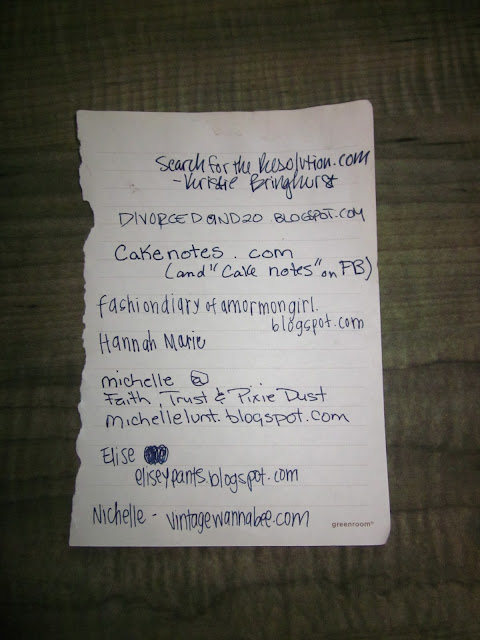 Search for the Resolution.com
- Kristie Bringhurst
DIVORCEDAND20.BLOGSPOT.COM
Cakenotes.com
(and "Cake notes" on FB)
fashiondiaryofamormongirl.
blogspot.com
Hannah Marie
michelle @
Faith, Trust & Pixie Dust
michellelunt.blogspot.com
Elise
eliseypants.blogspot.com
Nichelle - vintagewannabee.com
greenroom